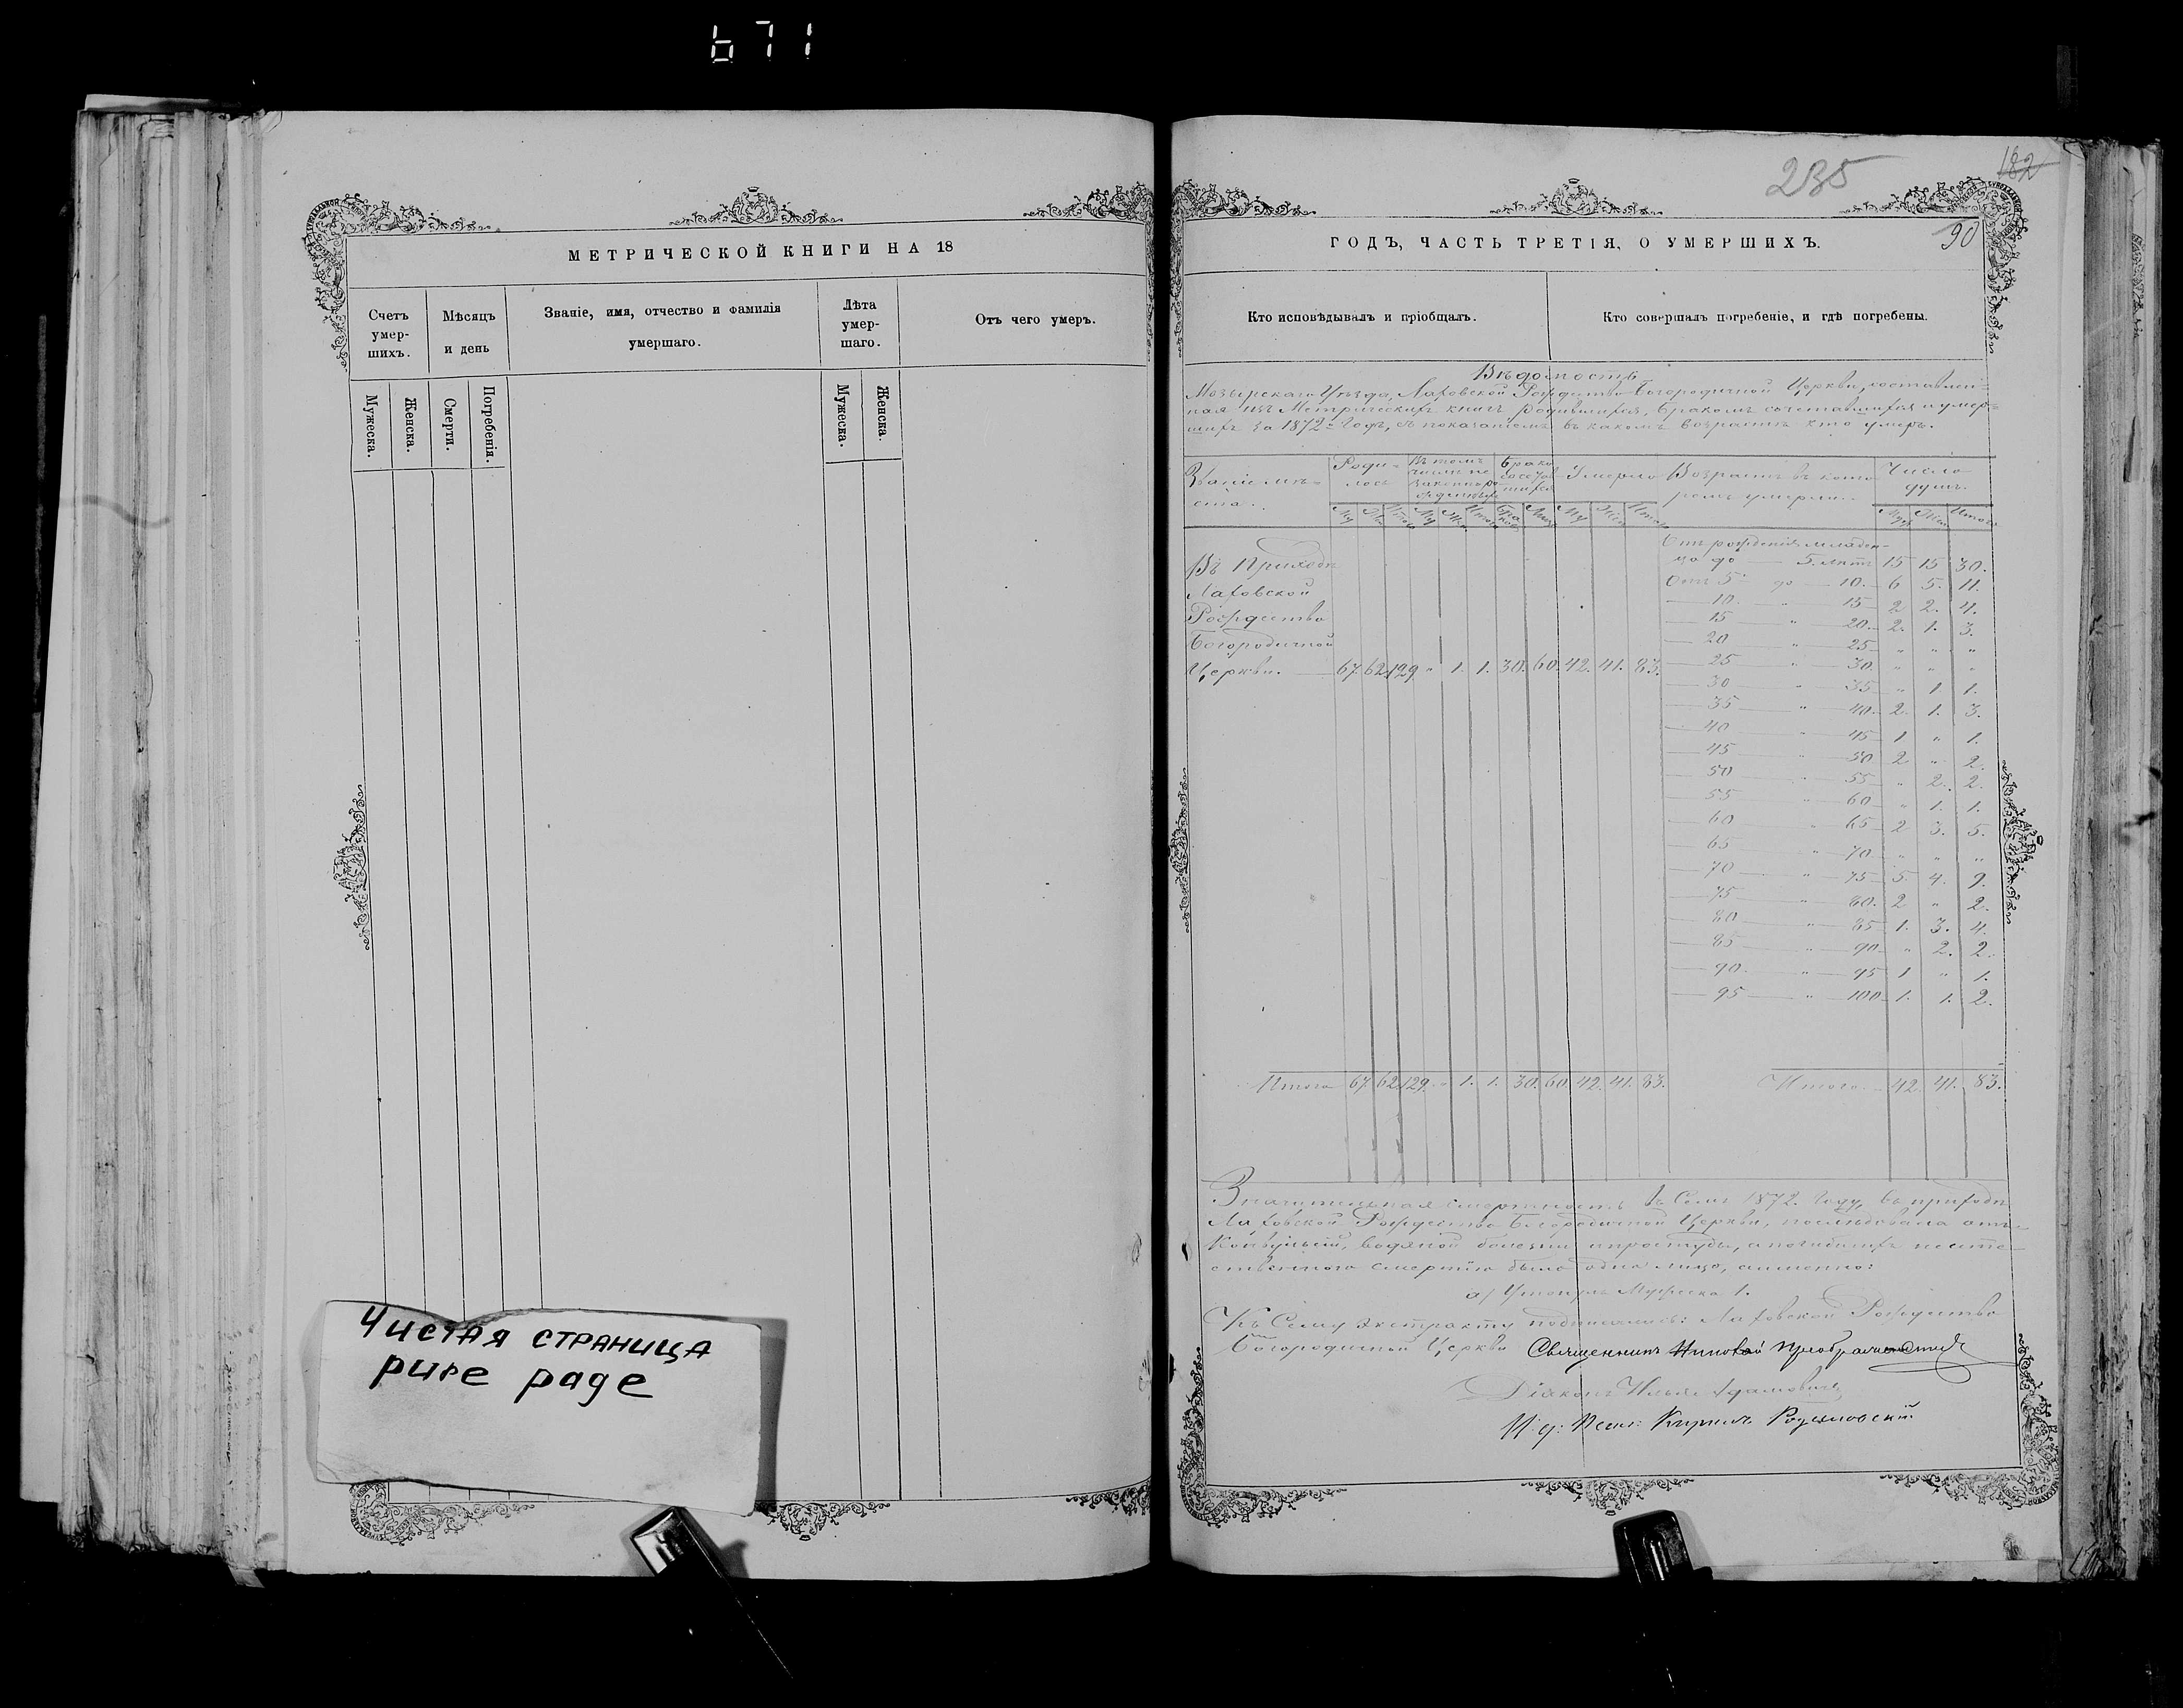 671
МЕТРИЧЕСКОЙ КНИГИ НА 18
Счетъ умер-шихъ.
Мѣсяцъ и день
Званіе, имя, отчество и фамилія умершаго.
Лѣта умер-шаго.
Отъ чего умеръ.
Мужеска.
Женска.
Смерти.
Погребенія.
Мужеска.
Женска.
Чистая страница
pure page
235
182
90
ГОДЪ, ЧАСТЬ ТРЕТІЯ, О УМЕРШИХЪ.
Кто исповѣдывалъ и пріобщалъ.
Кто совершалъ погребеніе, и гдѣ погребены.
Вѣдомость
Мозырскаго Уѣзда, Лаховской Рождество Богородичной Церкви, составлен-
ная изъ Метрическихъ книгъ родившихся, бракомъ сочетавшихся и умер-
шихъ за 1872 годъ, съ показаніемъ въ какомъ возрастѣ кто умеръ.
Званіе мѣ-ста.
Роди-лось
Въ томъ числѣ не законно ро-
Умерло
Возрастъ въ кото-ромъ умерли.
Число душъ.
Му Же Итого Му Же Итого Бра Му Же Итого
Муж Жен Итого
Отъ рожденія младен-
ца до 5. лѣтъ 15 15 30.
Отъ 5 до 10. 6 5. 11.
10. " 15 2 2. 4.
15 " 20. 2. 1. 3.
20 " 25 " " "
25 " 30. " " "
30 " 35 " 1 1.
35 " 40. 2. 1. 3.
40 " 45 1 " 1.
45 " 50 2 " 2.
50 " 55 " 2. 2.
55 " 60 " 1. 1.
60 " 65 2 3. 5.
65 " 70 " " "
70 " 75 5 4. 9.
75 " 80. 2 " 2.
80 " 85 1. 3. 4.
85 " 90 " 2. 2.
90. " 95 1 " 1.
95 " 100 1. 1. 2.
Въ Приходѣ
Лаховской
Рождество
Богородичной
Церкви. 67. 62. 129 " 1. 1. 30. 60. 42. 41. 83.
Итого 67. 62. 129. " 1. 1. 30. 60. 42. 41. 83.
Итого. 42. 41. 83.
Значительная смертность въ Семъ 1872. Году, въ приходѣ
Лаховской Рождество Богородичной Церкви, послѣдовала отъ
Конвульсій, водяной болезни и простуды, а погибшихъ неесте-
ственною смертію было одно лицо, а именно:
а) Утонулъ Мужеска 1.
Къ Сему экстракту подписались: Лаховской Рождество
Богородичной Церкви Священникъ Преображенскій
Діаконъ Илья Адамовичъ
И. д. Псал: Кирилъ